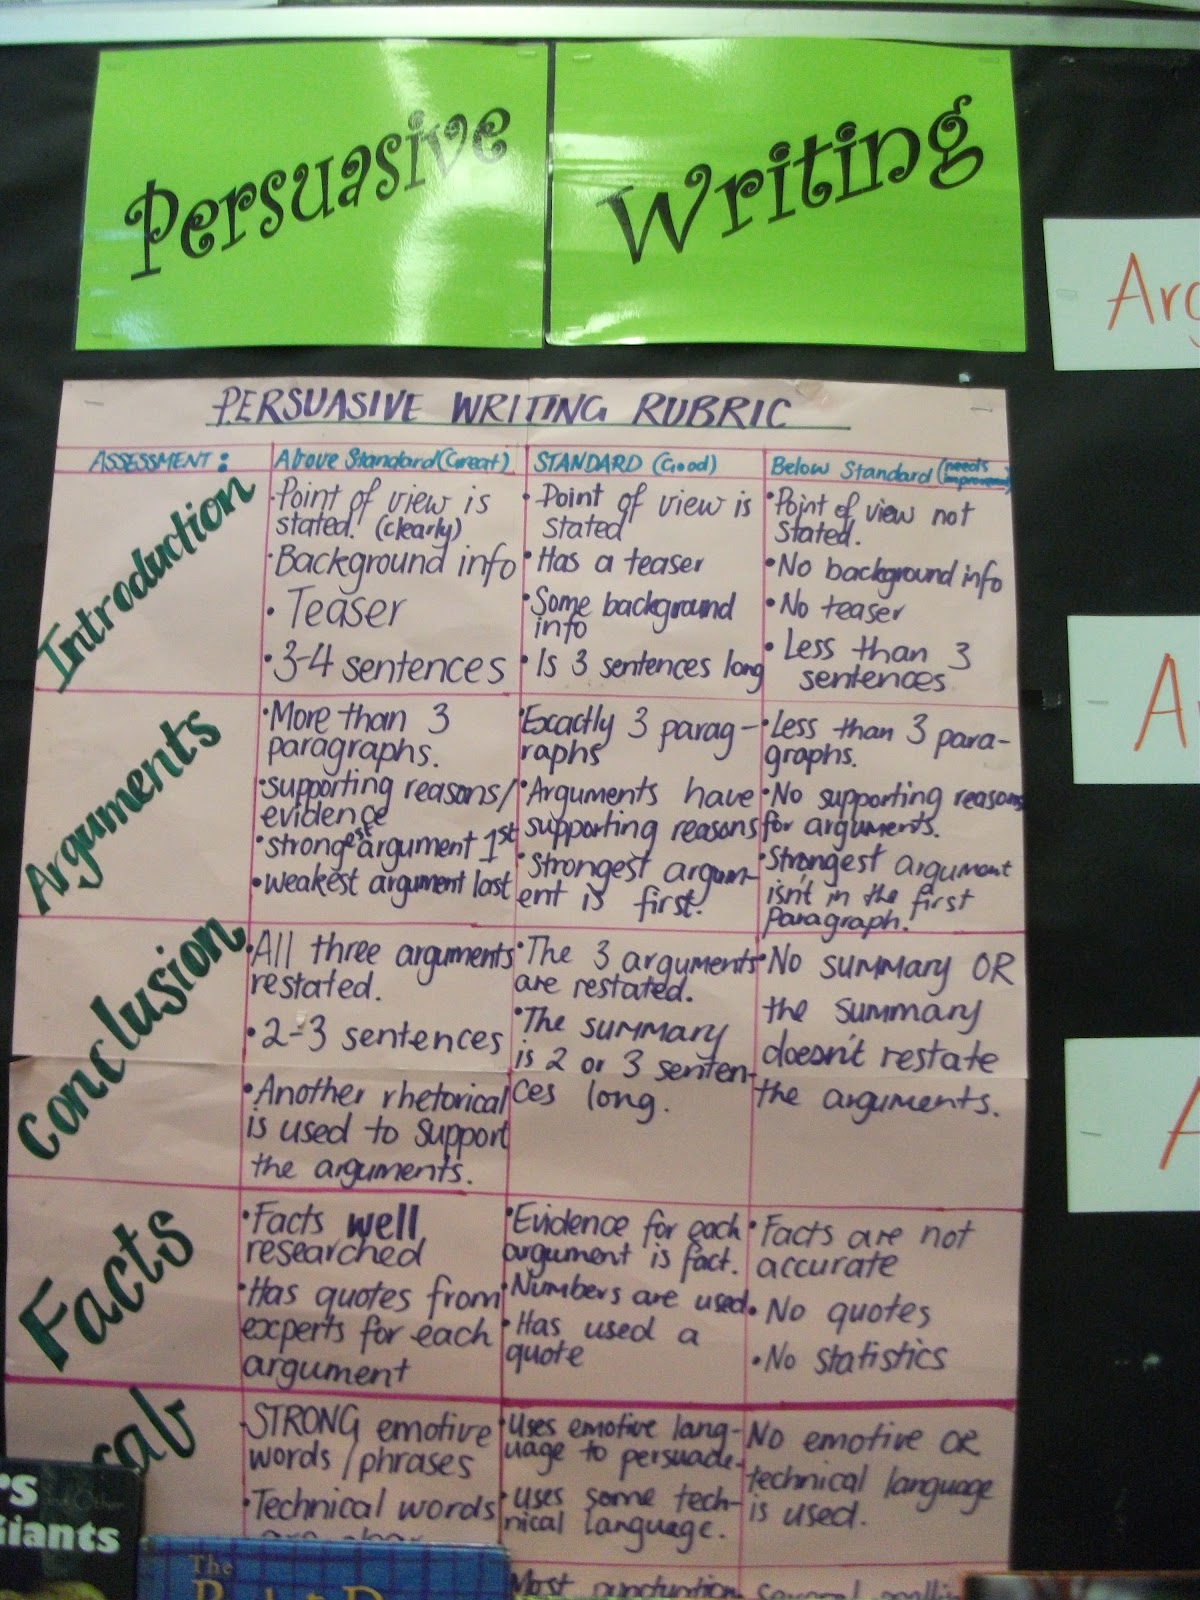 Persuasive
Writing
Arg
A
A
PERSUASIVE WRITING RUBRIC
ASSESSMENT:
Above Standard (Great)
STANDARD (Good)
Below Standard (needs
improvement)
Introduction
• Point of view is
stated. (clearly)
• Background info
• Teaser
• 3-4 sentences
• Point of view is
stated
• Has a teaser
• Some background
info
• Is 3 sentences long
• Point of view not
stated.
• No background info
• No teaser
• Less than 3
sentences
Arguments
• More than 3
paragraphs.
• supporting reasons/
evidence
• strongest argument 1st
• weakest argument last
• Exactly 3 parag-
raphs
• Arguments have
supporting reasons
• strongest argum-
ent is first.
• Less than 3 para-
graphs.
• No supporting reasons
for arguments.
• Strongest argument
isn't in the first
Paragraph.
Conclusion
• All three arguments
restated.
• 2-3 sentences
• Another rhetorical
is used to support
the arguments.
• The 3 arguments
are restated.
• The summary
is 2 or 3 senten-
ces long.
• No summary OR
the summary
doesn't restate
the arguments.
Facts
• Facts well
researched
• Has quotes from
experts for each
argument
• Evidence for each
argument is fact.
• Numbers are used.
• Has used a
quote
• Facts are not
accurate
• No quotes
• No statistics
cab
• STRONG emotive
words/phrases
• Technical words
• Uses emotive lang-
uage to persuade.
• uses some tech-
nical language.
• No emotive OR
technical language
is used.
Most punctuation
Giants
The